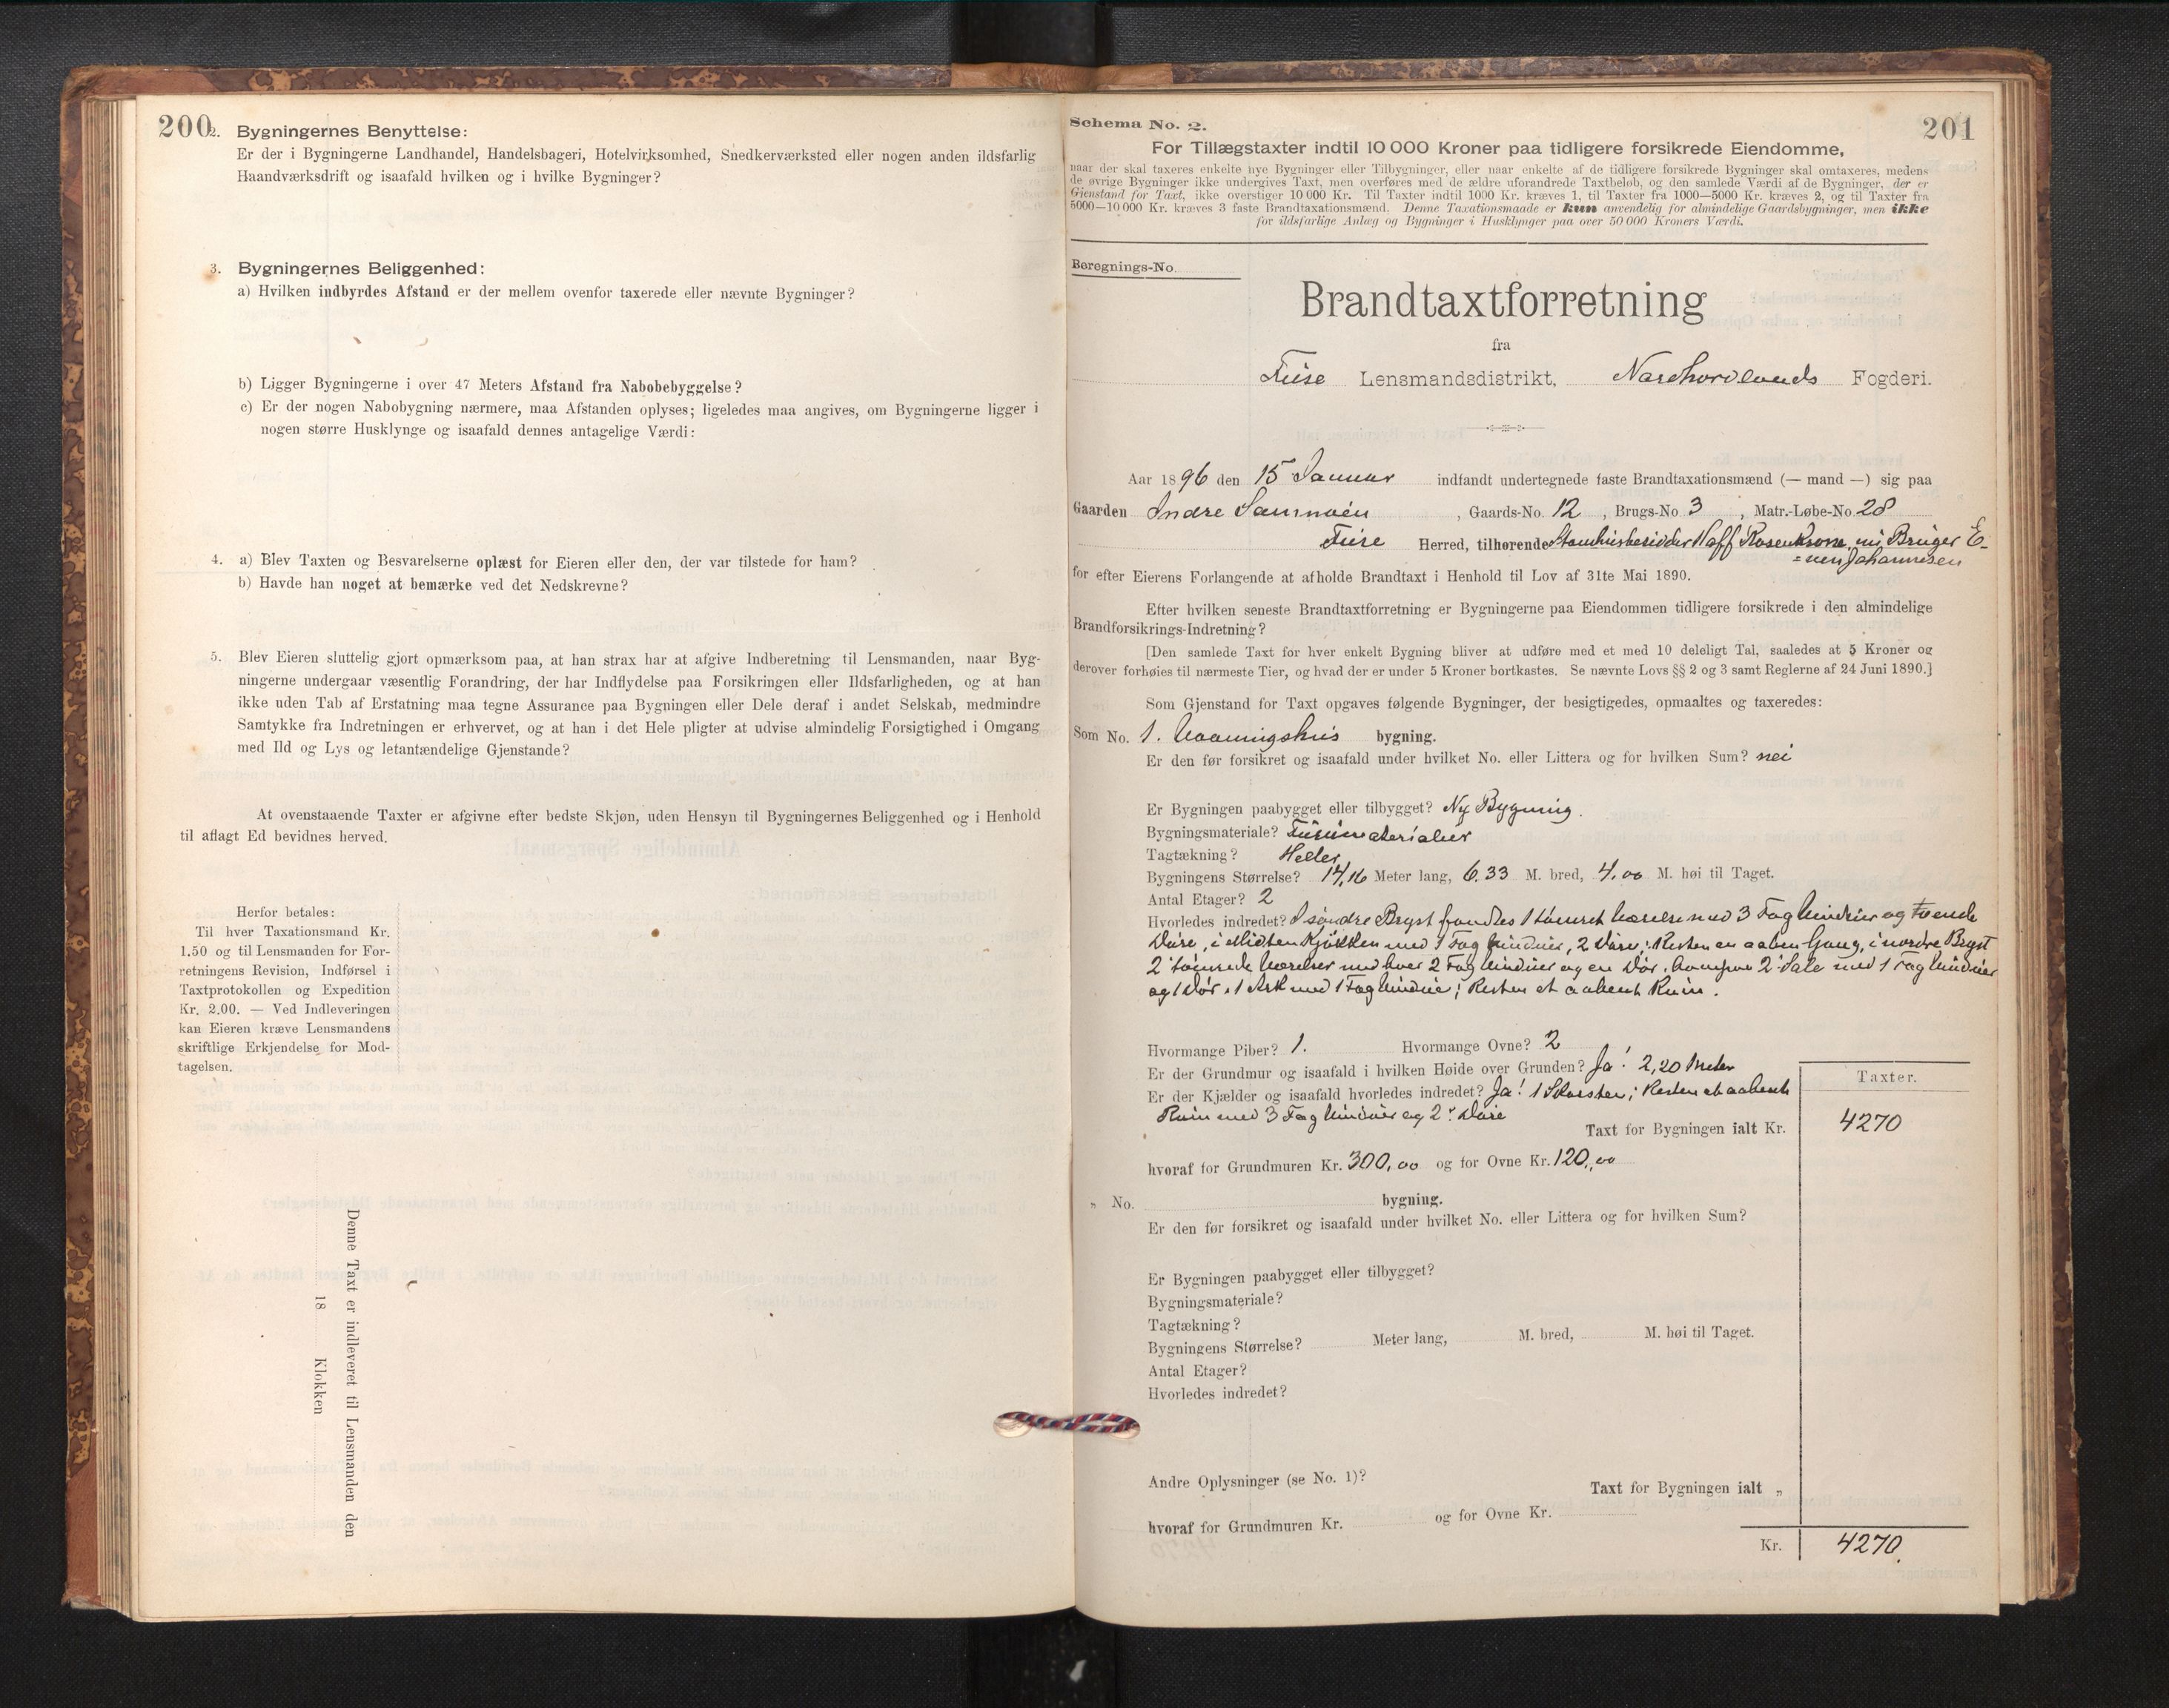 200
2. Bygningernes Benyttelse:
Er der i Bygningerne Landhandel, Handelsbageri, Hotelvirksomhed, Snedkerværksted eller nogen anden ildsfarlig
Haandværksdrift og isaafald hvilken og i hvilke Bygninger?
3. Bygningernes Beliggenhed:
a) Hvilken indbyrdes Afstand er der mellem ovenfor taxerede eller nævnte Bygninger?
b) Ligger Bygningerne i over 47 Meters Afstand fra Nabobebyggelse?
c) Er der nogen Nabobygning nærmere, maa Afstanden oplyses; ligeledes maa angives, om Bygningerne ligger i
nogen større Husklynge og isaafald dennes antagelige Værdi:
4. a) Blev Taxten og Besvarelserne oplæst for Eieren eller den, der var tilstede for ham?
b) Havde han noget at bemærke ved det Nedskrevne?
5. Blev Eieren sluttelig gjort opmærksom paa, at han strax har at afgive Indberetning til Lensmanden, naar Byg-
ningerne undergaar væsentlig Forandring, der har Indflydelse paa Forsikringen eller Ildsfarligheden, og at han
ikke uden Tab af Erstatning maa tegne Assurance paa Bygningen eller Dele deraf i andet Selskab, medmindre
Samtykke fra Indretningen er erhvervet, og at han i det Hele pligter at udvise almindelig Forsigtighed i Omgang
med Ild og Lys og letantændelige Gjenstande?
At ovenstaaende Taxter er afgivne efter bedste Skjøn, uden Hensyn til Bygningernes Beliggenhed og i Henhold
til aflagt Ed bevidnes herved.
Herfor betales:
Til hver Taxationsmand Kr.
1.50 og til Lensmanden for For-
retningens Revision, Indførsel i
Taxtprotokollen og Expedition
Kr. 2.00. — Ved Indleveringen
kan Eieren kræve Lensmandens
skriftlige Erkjendelse for Mod-
tagelsen.
Denne Taxt er indleveret til Lensmanden den
18 Klokken
201
Schema No. 2.
For Tillægstaxter indtil 10 000 Kroner paa tidligere forsikrede Eiendomme,
naar der skal taxeres enkelte nye Bygninger eller Tilbygninger, eller naar enkelte af de tidligere forsikrede Bygninger skal omtaxeres, medens
de øvrige Bygninger ikke undergives Taxt, men overføres med de ældre uforandrede Taxtbeløb, og den samlede Værdi af de Bygninger, der er
Gjenstand for Taxt, ikke overstiger 10 000 Kr. Til Taxter indtil 1000 Kr. kræves 1, til Taxter fra 1000—5000 Kr. kræves 2, og til Taxter fra
5000—10 000 Kr. kræves 3 faste Brandtaxationsmænd. Denne Taxationsmaade er kun anvendelig for almindelige Gaardsbygninger, men ikke
for ildsfarlige Anlæg og Bygninger i Husklynger paa over 50 000 Kroners Værdi.
Beregnings-No.
Brandtaxtforretning
fra
Fuse Lensmandsdistrikt, Nordhordlands Fogderi.
Aar 1896 den 15 Januar indfandt undertegnede faste Brandtaxationsmænd (— mand —) sig paa
Gaarden Indre Samnøen, Gaards-No. 12, Brugs-No 3, Matr.-Løbe-No. 28
Fuse Herred, tilhørende Stamhusbesidder Hoff Rosenkrone, nu Bruger E-
=nen Johannesen
for efter Eierens Forlangende at afholde Brandtaxt i Henhold til Lov af 31te Mai 1890.
Efter hvilken seneste Brandtaxtforretning er Bygningerne paa Eiendommen tidligere forsikrede i den almindelige
Brandforsikrings-Indretning?
[Den samlede Taxt for hver enkelt Bygning bliver at udføre med et med 10 deleligt Tal, saaledes at 5 Kroner og
derover forhøies til nærmeste Tier, og hvad der er under 5 Kroner bortkastes. Se nævnte Lovs §§ 2 og 3 samt Reglerne af 24 Juni 1890.]
Som Gjenstand for Taxt opgaves følgende Bygninger, der besigtigedes, opmaaltes og taxeredes:
Som No. 1. Vaaningshus bygning.
Er den før forsikret og isaafald under hvilket No. eller Littera og for hvilken Sum? nei
Er Bygningen paabygget eller tilbygget? Ny Bygning.
Bygningsmateriale? Furumaterialier
Tagtækning? Heller
Bygningens Størrelse? 14,16 Meter lang, 6.33 M. bred, 4.00 M. høi til Taget.
Antal Etager? 2
Hvorledes indredet? I søndre Bryst fandtes 1 tømret Værelse med 3 Fag Vinduer og tvende
Døre, i Midten Kjøkken med 1 Fag Vinduer, 2 Døre; Resten en aaben Gang, i nordre Bryst
2 tømrede Værelser med hver 2 Fag Vinduer og en Dør. Ovenpaa 2 Sale med 1 Fag Vinduer
og 1 Dør. 1 Ark med 1 Fag Vindue; Resten et aabent Rum.
Hvormange Piber? 1. Hvormange Ovne? 2
Er der Grundmur og isaafald i hvilken Høide over Grunden? Ja! 2,20 Meter
Er der Kjælder og isaafald hvorledes indredet? Ja! 1 Skorsten; Resten et aabent
Rum med 3 Fag Vinduer og 2 Døre
Taxter.
Taxt for Bygningen ialt Kr. 4270
hvoraf for Grundmuren Kr. 300,00 og for Ovne Kr. 120,00
„ No. bygning.
Er den før forsikret og isaafald under hvilket No. eller Littera og for hvilken Sum?
Er Bygningen paabygget eller tilbygget?
Bygningsmateriale?
Tagtækning?
Bygningens Størrelse? Meter lang, M. bred, M. høi til Taget.
Antal Etager?
Hvorledes indredet?
Andre Oplysninger (se No. 1)?
Taxt for Bygningen ialt „
hvoraf for Grundmuren Kr. og for Ovne Kr.
Kr. 4270.